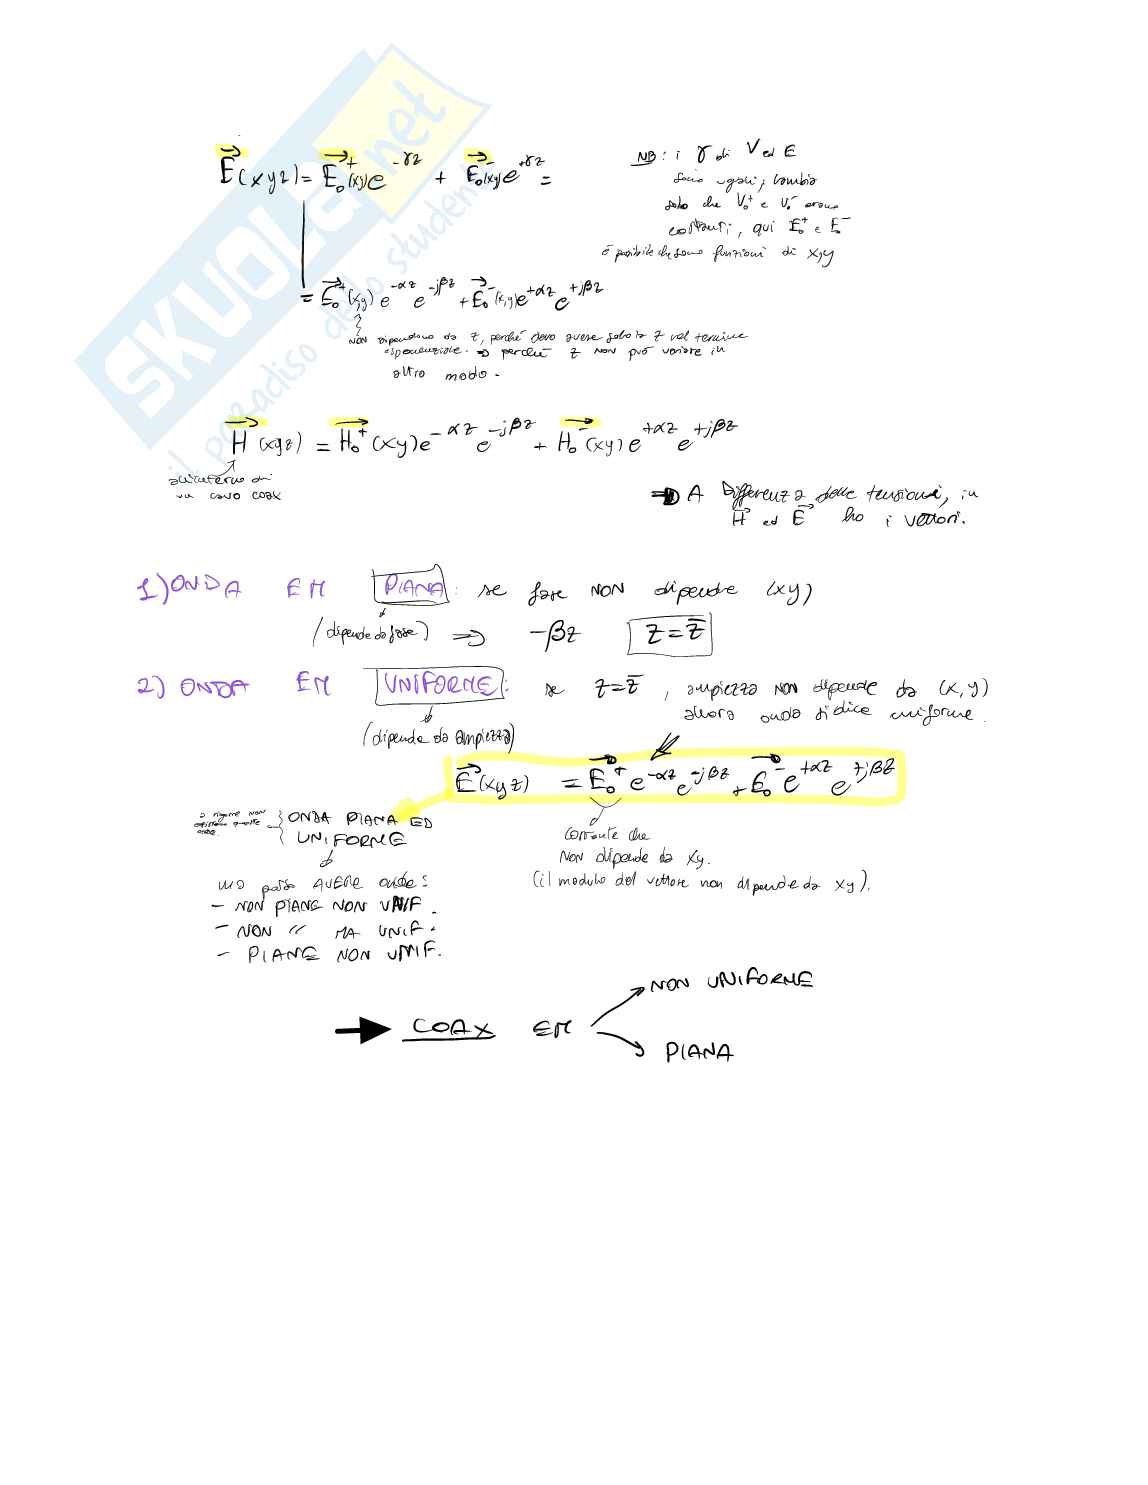 SKUOLA.net
il paradiso dello studente
E(xyz) = E₀⁺(xy)e^{-γz} + E₀⁻(xy)e^{+γz} =
NB: i γ di V ed E
sono uguali, cambia
solo che V₀⁺ e V₀⁻ erano
costanti, qui E₀⁺ e E₀⁻
è possibile che sono funzioni di x,y
= E₀⁺(x,y) e^{-αz} e^{-jβz} + E₀⁻(x,y) e^{+αz} e^{+jβz}
NON dipendono da z, perché devo avere solo la z nel termine
esponenziale. => perché z non può variare in
altro modo.
H(xyz) = H₀⁺(xy) e^{-αz} e^{-jβz} + H₀⁻(xy) e^{+αz} e^{+jβz}
all'interno di
un cavo coax
=> A Differenza delle tensioni, in
H ed E ho i vettori.
1) ONDA EM PIANA: se fase NON dipende (xy)
(dipende da fase) => -βz z = z̄
2) ONDA EM UNIFORME: se z = z̄, ampiezza NON dipende da (x,y)
allora onda si dice uniforme.
(dipende da ampiezza)
E(xyz) = E₀⁺ e^{-αz} e^{-jβz} + E₀⁻ e^{+αz} e^{+jβz}
a rigore non
esistono queste
onde
ONDA PIANA ED
UNIFORME
costante che
NON dipende da xy.
(il modulo del vettore non dipende da xy).
ma posso AVERE onde:
- NON PIANE NON UNIF.
- NON " MA UNIF.
- PIANE NON UNIF.
COAX EM
NON UNIFORME
PIANA